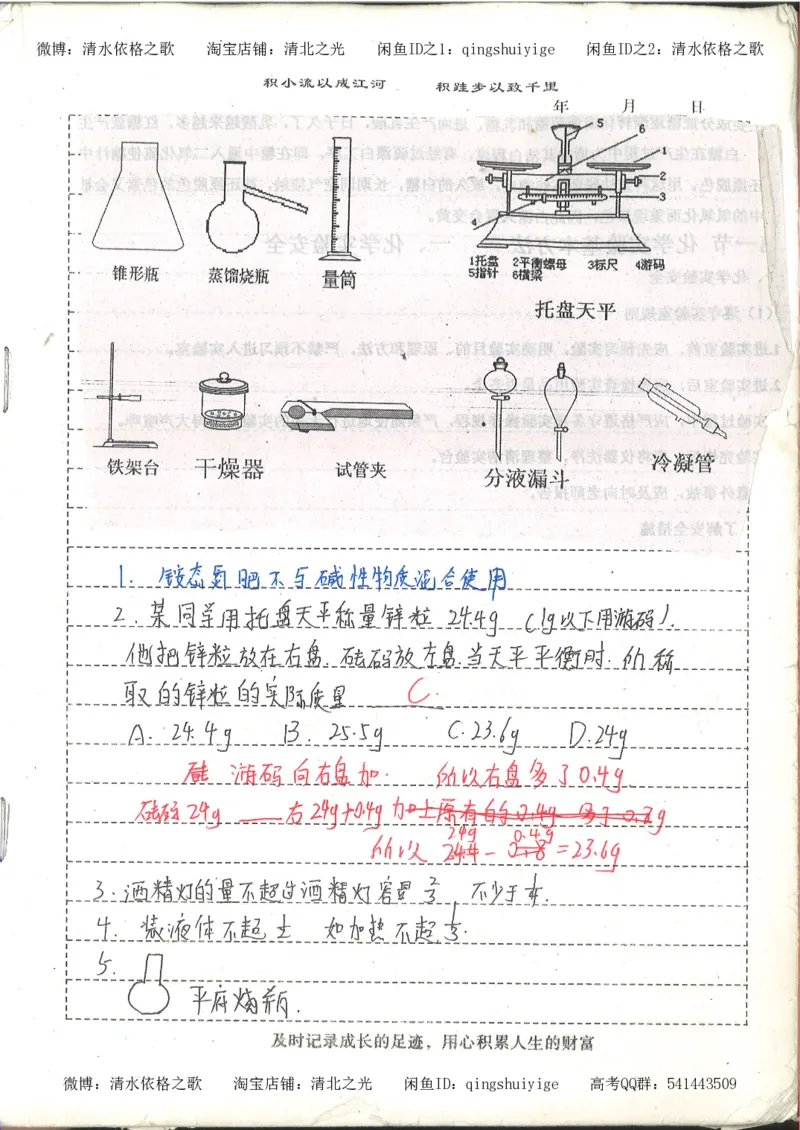 微博：清水依格之歌 淘宝店铺：清北之光 闲鱼ID之1：qingshuiyige 闲鱼ID之2：清水依格之歌
积小流以成江河 积跬步以致千里
年 月 日
5
6
1
2
3
4
锥形瓶 蒸馏烧瓶 量筒
1托盘 2平衡螺母 3标尺 4游码
5指针 6横梁
托盘天平
铁架台 干燥器 试管夹 分液漏斗 冷凝管
1. 铵态氮肥不与碱性物质混合使用
2. 某同学用托盘天平称量锌粒 24.4g (1g以下用游码).
他把锌粒放在右盘. 砝码放左盘. 当天平平衡时. 所称
取的锌粒的实际质量 C.
A. 24.4g B. 25.5g C. 23.6g D. 24g
游码向右盘加. 所以右盘多了0.4g.
砝码24g 右24g+0.4g 加上原有的0.4g 多了0.8g
24g 0.4g
所以 24.4 - 0.8 = 23.6g
3. 酒精灯的量不超过酒精灯容量 2/3, 不少于 1/4.
4. 装液体不超 如加热不超 1/3.
5.
平底烧瓶.
及时记录成长的足迹，用心积累人生的财富
微博：清水依格之歌 淘宝店铺：清北之光 闲鱼ID：qingshuiyige 高考QQ群：541443509